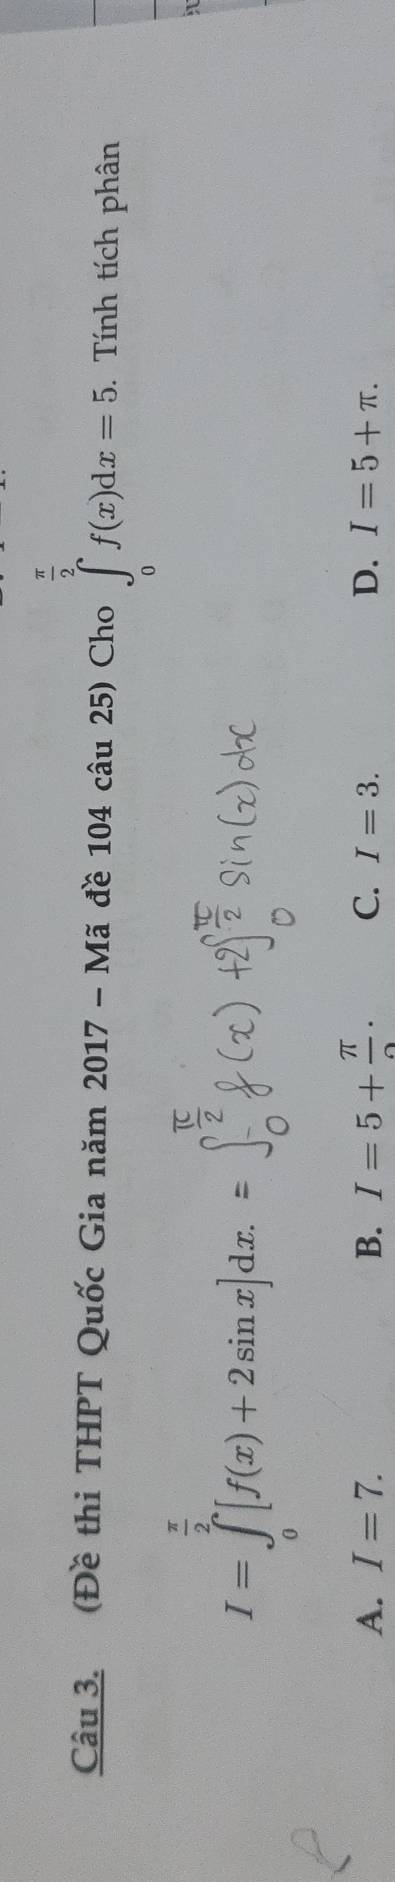 Câu 3. (Đề thi THPT Quốc Gia năm 2017 – Mã đề 104 câu 25) Cho ∫₀^{π/2} f(x)dx = 5. Tính tích phân
I = ∫₀^{π/2} [f(x) + 2 sin x]dx. = ∫₀^{π/2} f(x) + 2∫₀^{π/2} sin(x) dx
A. I = 7. B. I = 5 + π/2. C. I = 3. D. I = 5 + π.